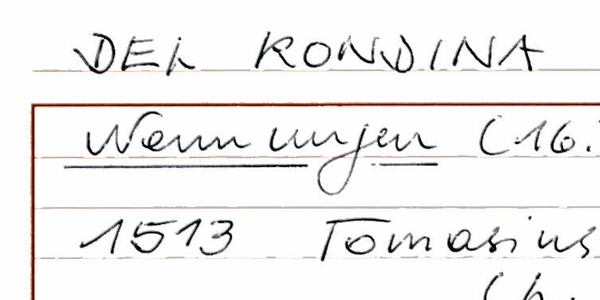 DEL RONDINA
Nennungen (16.
1513 Tomasius
(h.